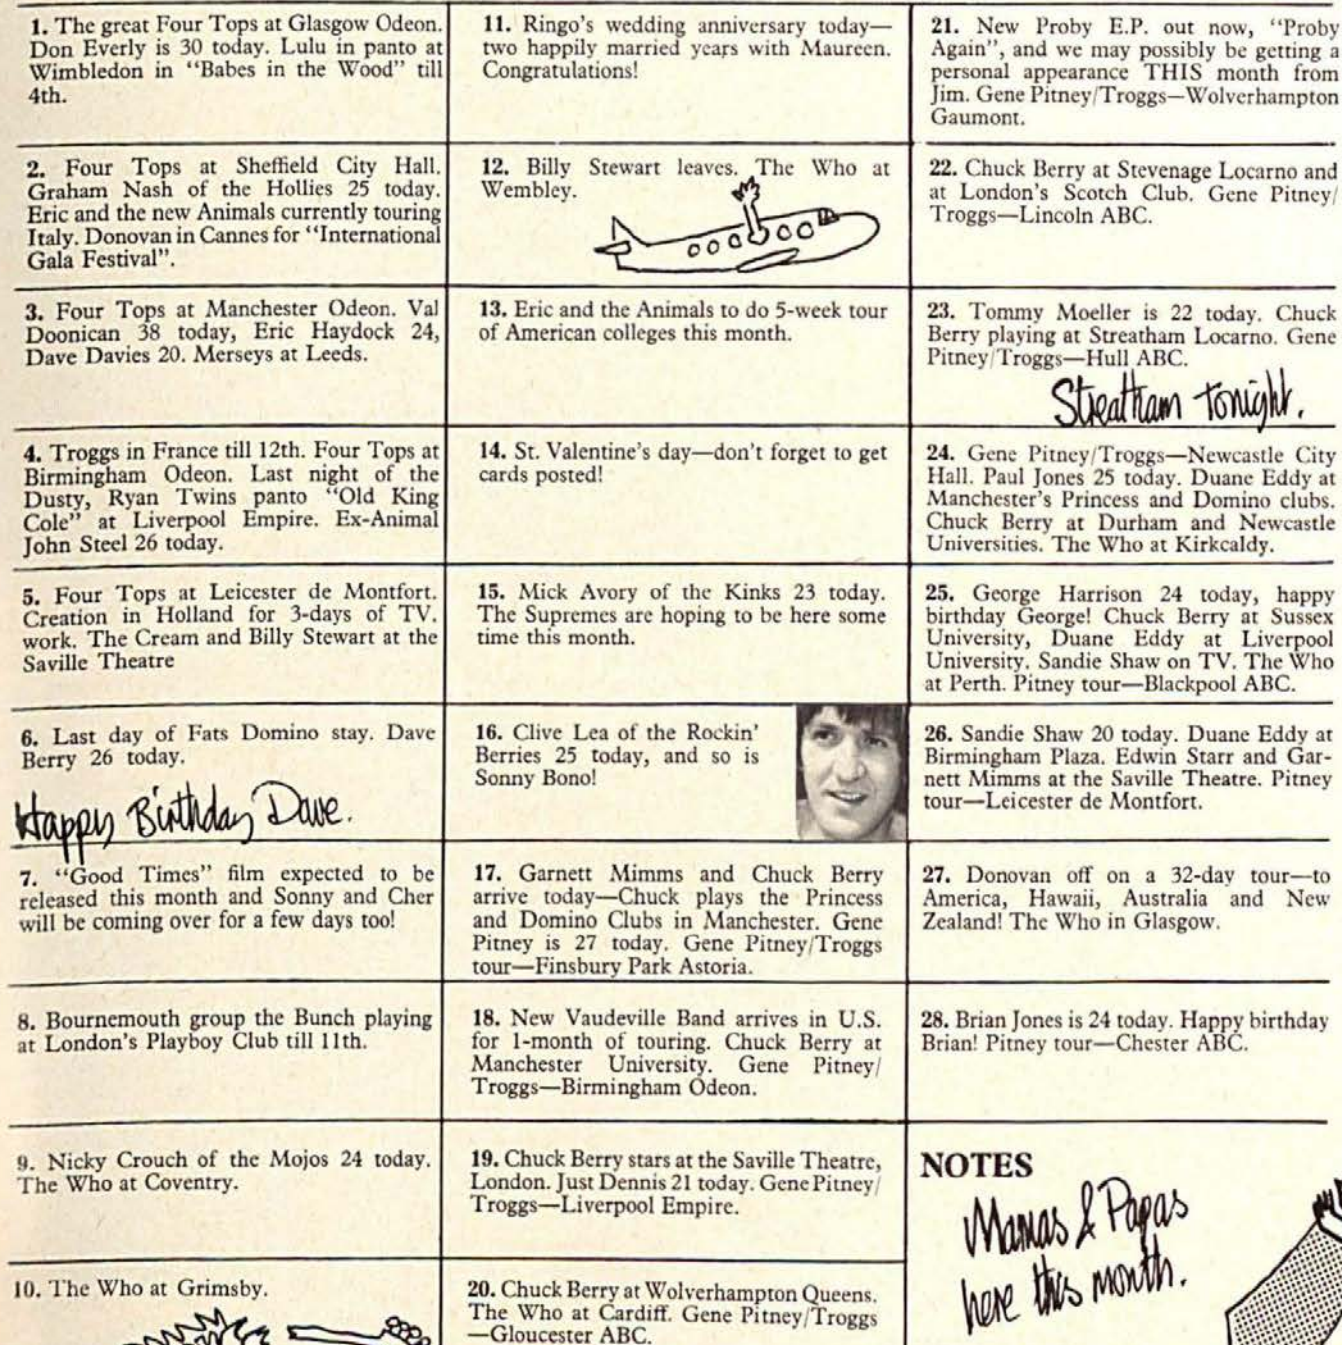 1. The great Four Tops at Glasgow Odeon.
Don Everly is 30 today. Lulu in panto at
Wimbledon in "Babes in the Wood" till
4th.
2. Four Tops at Sheffield City Hall.
Graham Nash of the Hollies 25 today.
Eric and the new Animals currently touring
Italy. Donovan in Cannes for "International
Gala Festival".
3. Four Tops at Manchester Odeon. Val
Doonican 38 today, Eric Haydock 24,
Dave Davies 20. Merseys at Leeds.
4. Troggs in France till 12th. Four Tops at
Birmingham Odeon. Last night of the
Dusty, Ryan Twins panto "Old King
Cole" at Liverpool Empire. Ex-Animal
John Steel 26 today.
5. Four Tops at Leicester de Montfort.
Creation in Holland for 3-days of TV.
work. The Cream and Billy Stewart at the
Saville Theatre
6. Last day of Fats Domino stay. Dave
Berry 26 today.
Happy Birthday Dave.
7. "Good Times" film expected to be
released this month and Sonny and Cher
will be coming over for a few days too!
8. Bournemouth group the Bunch playing
at London's Playboy Club till 11th.
9. Nicky Crouch of the Mojos 24 today.
The Who at Coventry.
10. The Who at Grimsby.
11. Ringo's wedding anniversary today—
two happily married years with Maureen.
Congratulations!
12. Billy Stewart leaves. The Who at
Wembley.
13. Eric and the Animals to do 5-week tour
of American colleges this month.
14. St. Valentine's day—don't forget to get
cards posted!
15. Mick Avory of the Kinks 23 today.
The Supremes are hoping to be here some
time this month.
16. Clive Lea of the Rockin'
Berries 25 today, and so is
Sonny Bono!
17. Garnett Mimms and Chuck Berry
arrive today—Chuck plays the Princess
and Domino Clubs in Manchester. Gene
Pitney is 27 today. Gene Pitney/Troggs
tour—Finsbury Park Astoria.
18. New Vaudeville Band arrives in U.S.
for 1-month of touring. Chuck Berry at
Manchester University. Gene Pitney/
Troggs—Birmingham Odeon.
19. Chuck Berry stars at the Saville Theatre,
London. Just Dennis 21 today. Gene Pitney/
Troggs—Liverpool Empire.
20. Chuck Berry at Wolverhampton Queens.
The Who at Cardiff. Gene Pitney/Troggs
—Gloucester ABC.
21. New Proby E.P. out now, "Proby
Again", and we may possibly be getting a
personal appearance THIS month from
Jim. Gene Pitney/Troggs—Wolverhampton
Gaumont.
22. Chuck Berry at Stevenage Locarno and
at London's Scotch Club. Gene Pitney/
Troggs—Lincoln ABC.
23. Tommy Moeller is 22 today. Chuck
Berry playing at Streatham Locarno. Gene
Pitney/Troggs—Hull ABC.
Streatham tonight.
24. Gene Pitney/Troggs—Newcastle City
Hall. Paul Jones 25 today. Duane Eddy at
Manchester's Princess and Domino clubs.
Chuck Berry at Durham and Newcastle
Universities. The Who at Kirkcaldy.
25. George Harrison 24 today, happy
birthday George! Chuck Berry at Sussex
University, Duane Eddy at Liverpool
University. Sandie Shaw on TV. The Who
at Perth. Pitney tour—Blackpool ABC.
26. Sandie Shaw 20 today. Duane Eddy at
Birmingham Plaza. Edwin Starr and Gar-
nett Mimms at the Saville Theatre. Pitney
tour—Leicester de Montfort.
27. Donovan off on a 32-day tour—to
America, Hawaii, Australia and New
Zealand! The Who in Glasgow.
28. Brian Jones is 24 today. Happy birthday
Brian! Pitney tour—Chester ABC.
NOTES
Mamas & Papas
here this month.